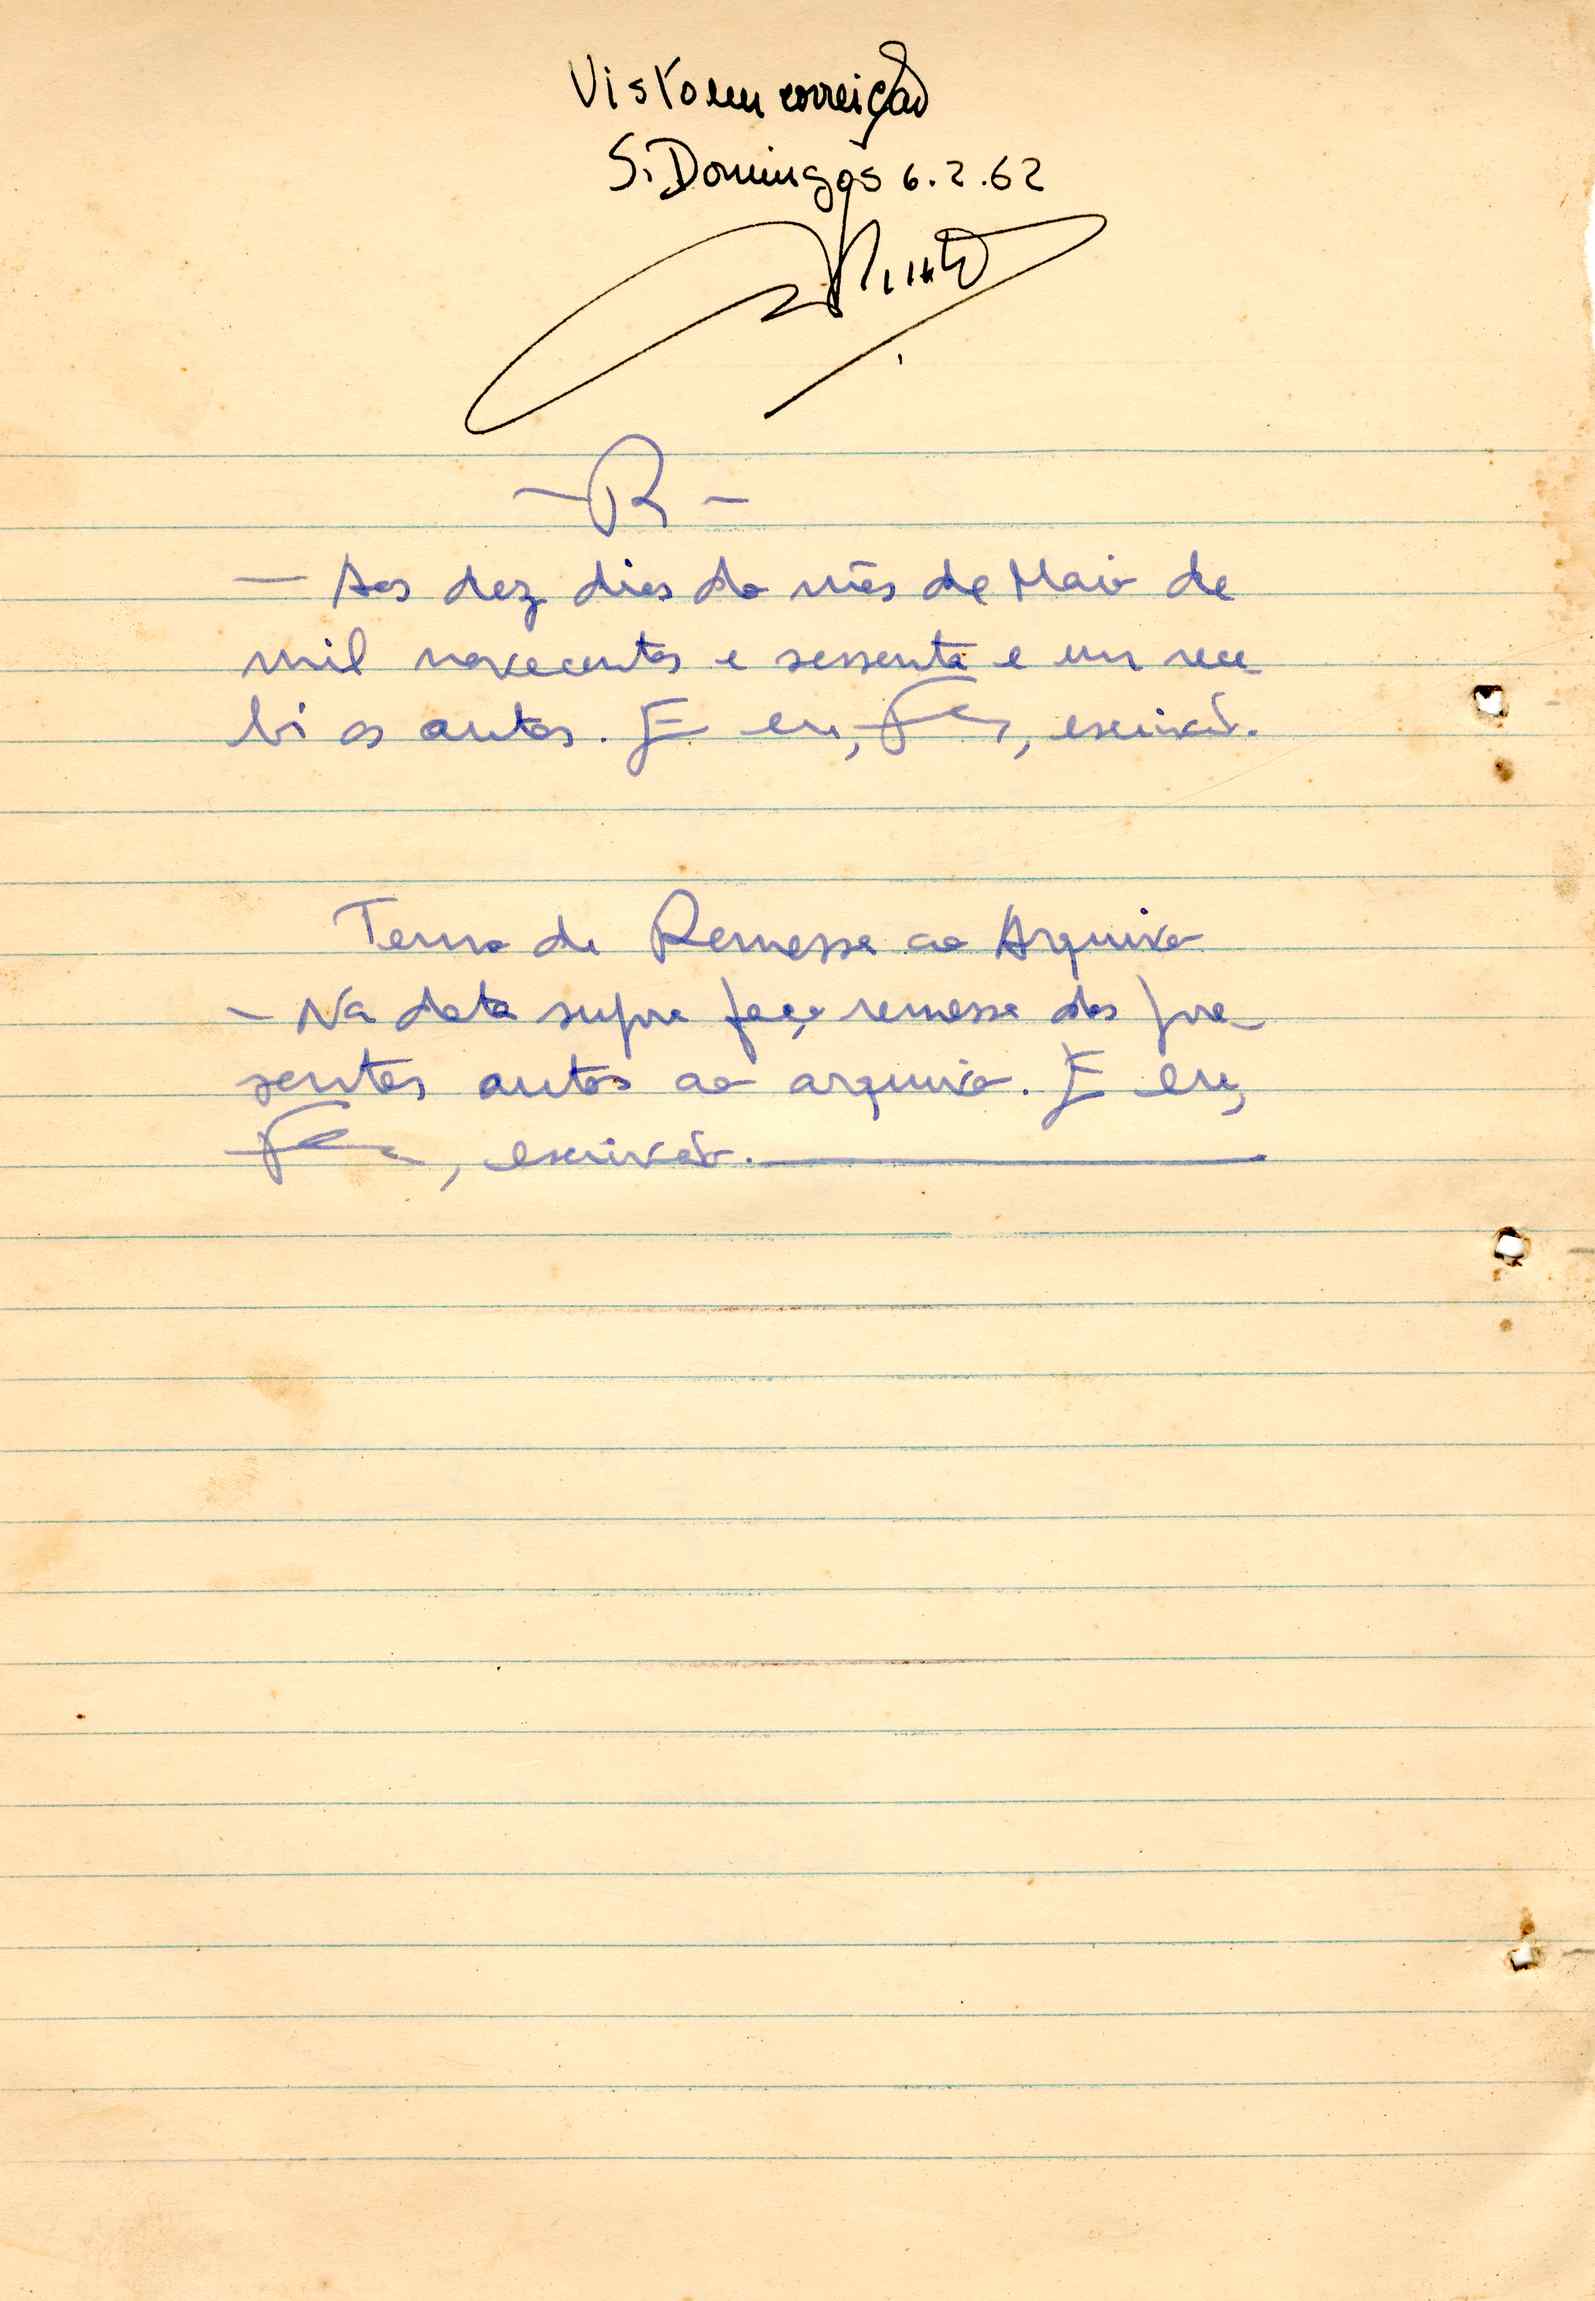 Visto em correição
S. Domingos 6.2.62
- R -
- Aos dez dias do mês de Maio de
mil novecentos e sessenta e um rece-
bi os autos. E eu, , escrivão.
Termo de Remessa ao Arquivo
- Na data supra faço remessa dos pre-
sentes autos ao arquivo. E eu,
, escrivão.